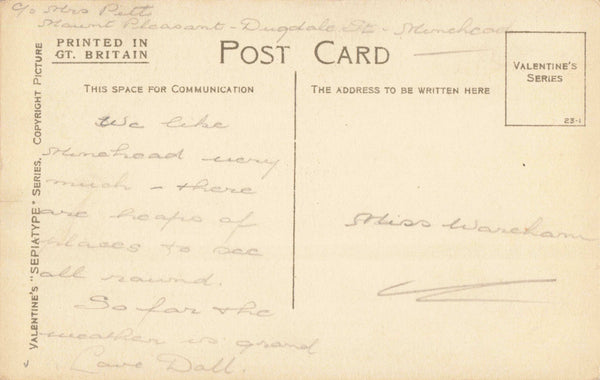 c/o Mrs Pitt
Mount Pleasant - Dugdale St - Minehead
PRINTED IN
GT. BRITAIN
POST CARD
VALENTINE'S
SERIES
23-1
THIS SPACE FOR COMMUNICATION
THE ADDRESS TO BE WRITTEN HERE
VALENTINE'S "SEPIATYPE" SERIES. COPYRIGHT PICTURE
We like
Minehead very
much - there
are heaps of
places to see
all round.
So far the
weather is grand
Love Doll.
Miss Wareham